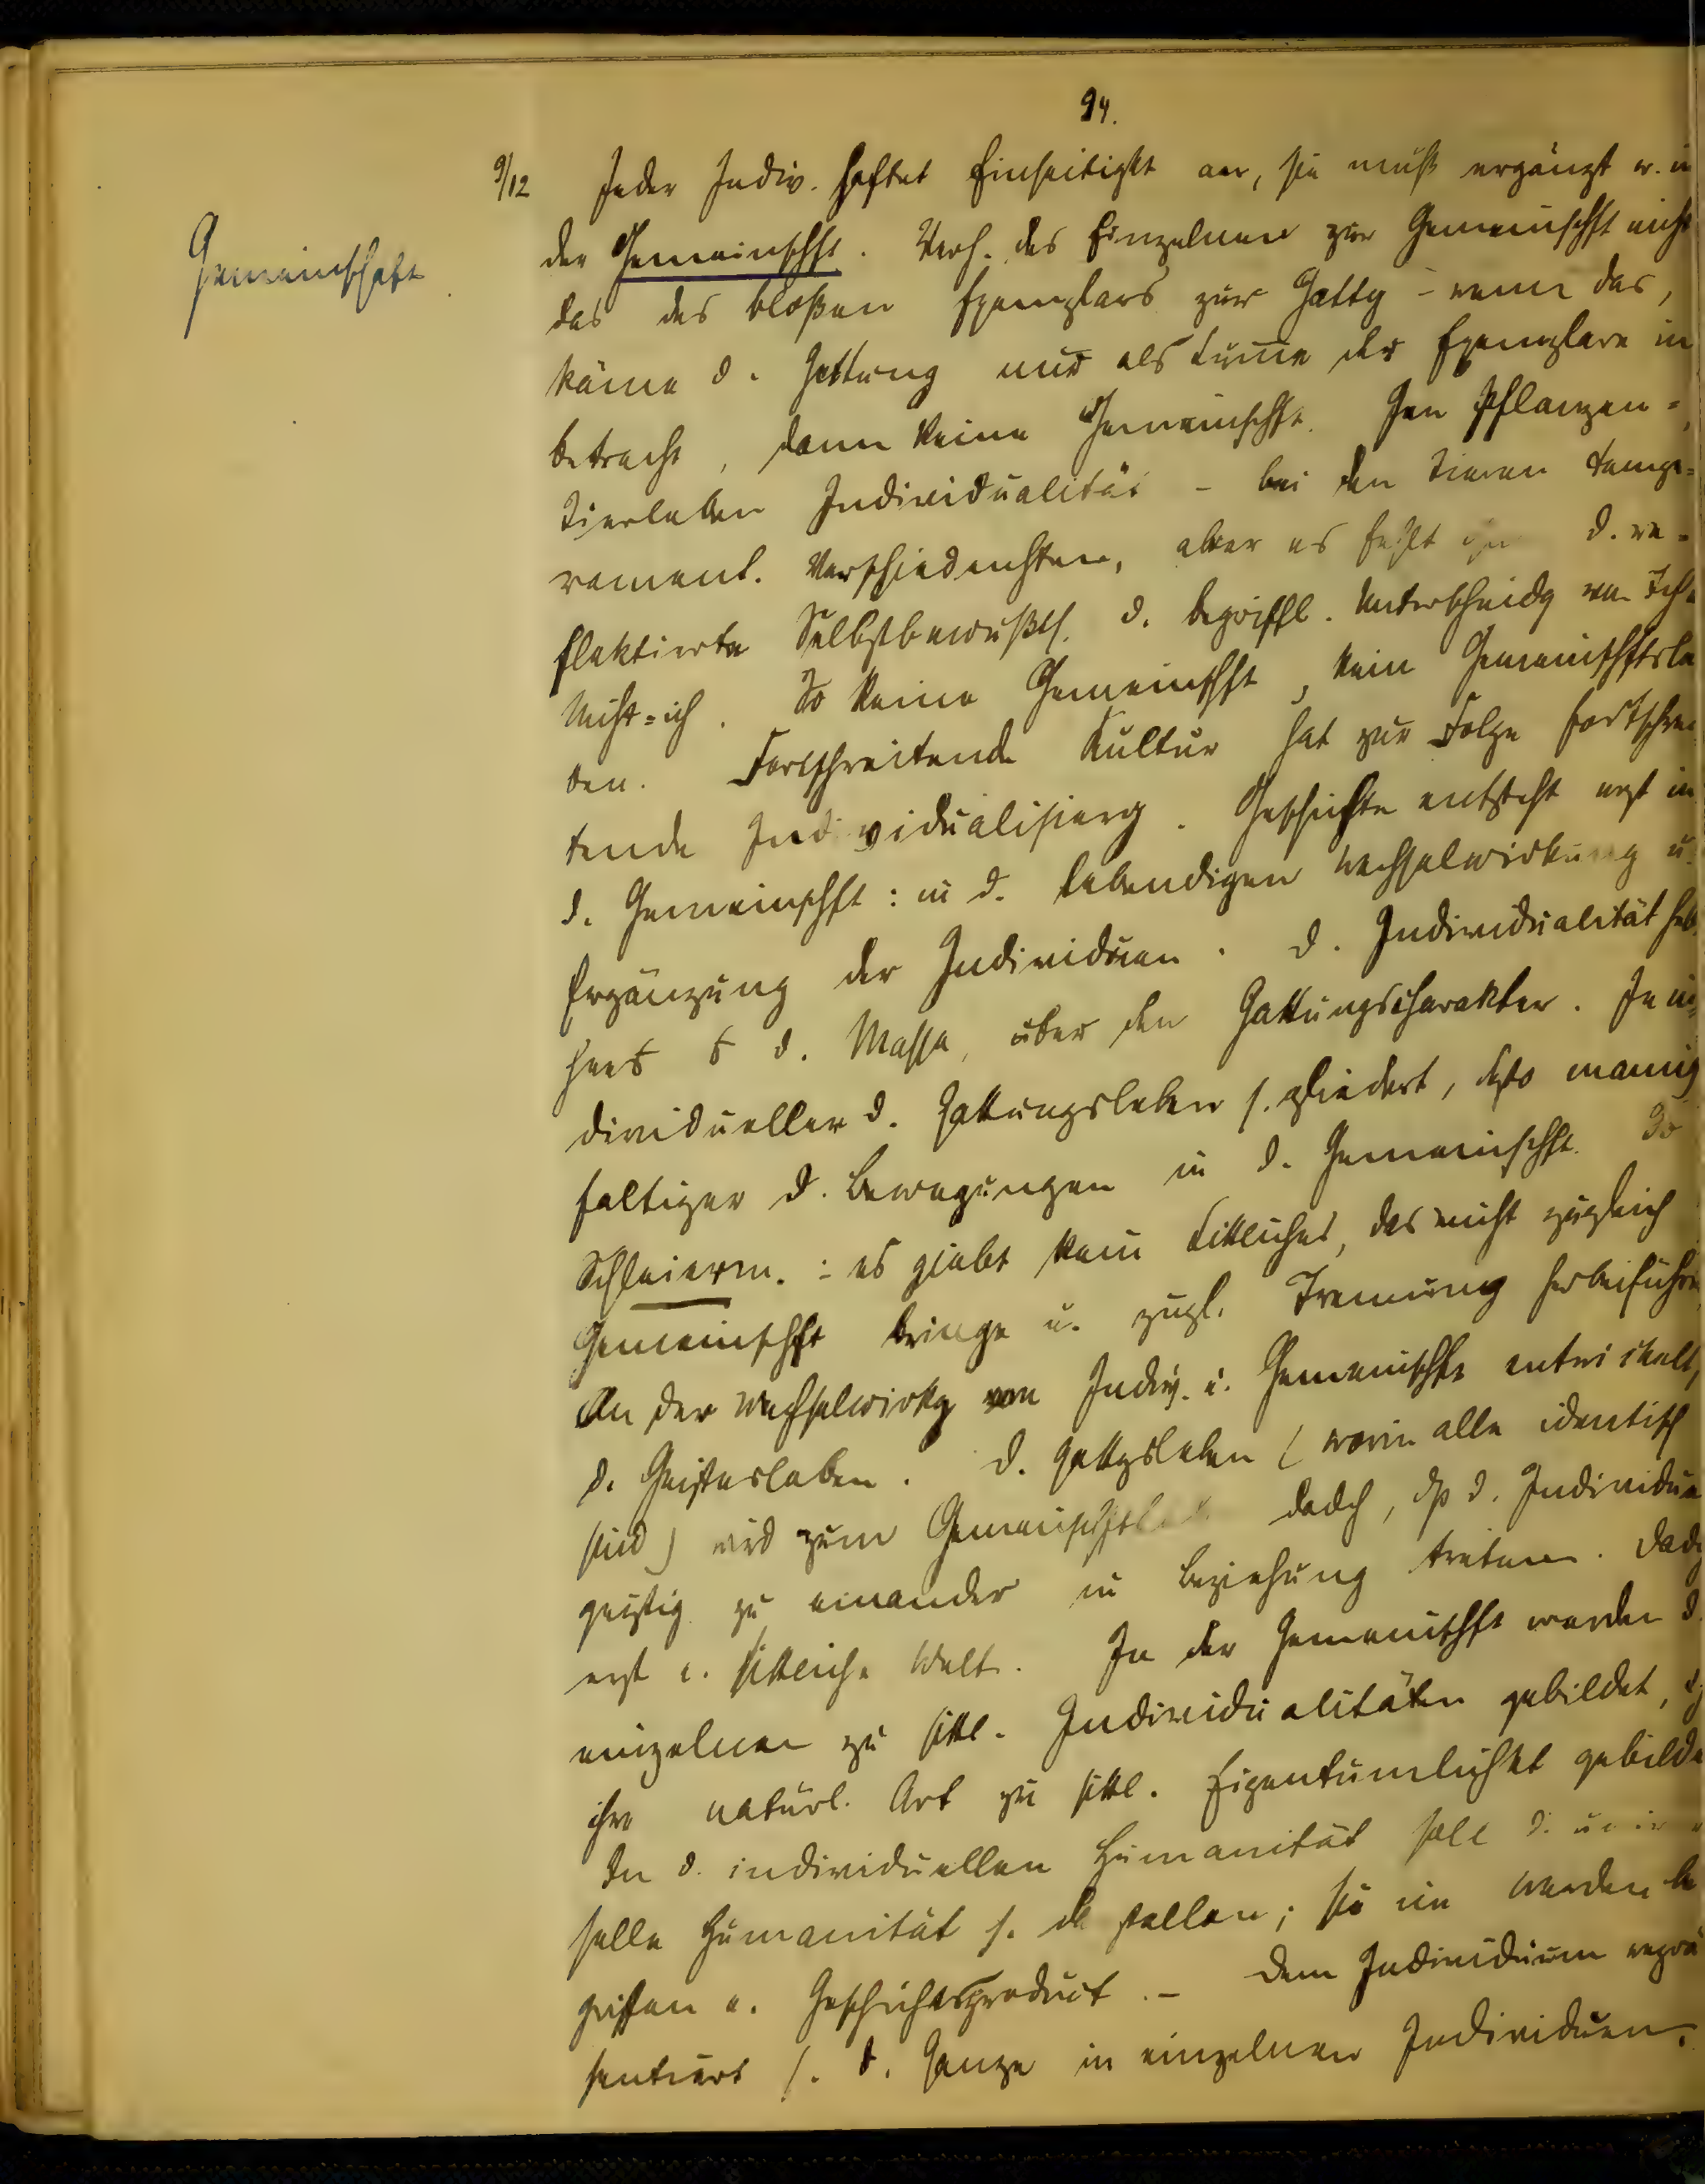 94.
9/12 Jeder Indiv. haftet Einseitigkt an, sie muß ergänzt w. in
Gemeinschaft
der Gemeinschft. Verh. des Einzelnen zur Gemeinschft nicht
das des bloßen Exemplars zur Gattg - wenn das,
käme d. Gattung nur als Sume der Exemplare in
betracht, dann keine Gemeinschft. Im Pflanzen =
Tierleben Individualität - bei den Tieren Tempe=
rament. Verschiedenhten, aber es fehlt d. re=
flektierte Selbstbewußts. d. begriffl. Unterscheidg von Ich u
Nicht=ich. So keine Gemeinschft, kein Gemeinschftsle
ben. Fortschreitende Kultur hat zur Folge fortschrei
tende Individualisierg. Geschichte entsteht erst in
d. Gemeinschft: in d. lebendigen Wechselwirkung u.
Ergänzung der Individuen. D. Individualität hebt
d. Masse, über den Gattungscharakter. Je in=
dividueller d. Gattungsleben s. gliedert, desto mannig
faltiger d. Bewegungen in d. Gemeinschft. So
Schleierm.: es giebt kein Sittliches, das nicht zugleich
Gemeinschft bringe u. zugl. Trennung herbeiführe.
An der Wechselwirkg von Indiv. u. Gemeinschft entwickelt
d. Geistesleben. D. Gattgsleben (worin alle identisch
sind) wird zum Gemeinschftsleben dadch, dß d. Individuen
geistig zu einander in Beziehung treten. Dadch
erst e. sittliche Welt. In der Gemeinschft werden d.
einzelnen zu sittl. Individualitäten gebildet,
ihre natürl. Art zu sittl. Eigentümlichkt gebildet
In d. individuellen Humanität soll d. univer
selle Humanität s. darstellen; sie im Werden be
griffen e. Geschichtsproduct. - Dem Individuum reprä
sentiert s. d. Ganze in einzelnen Individuen.